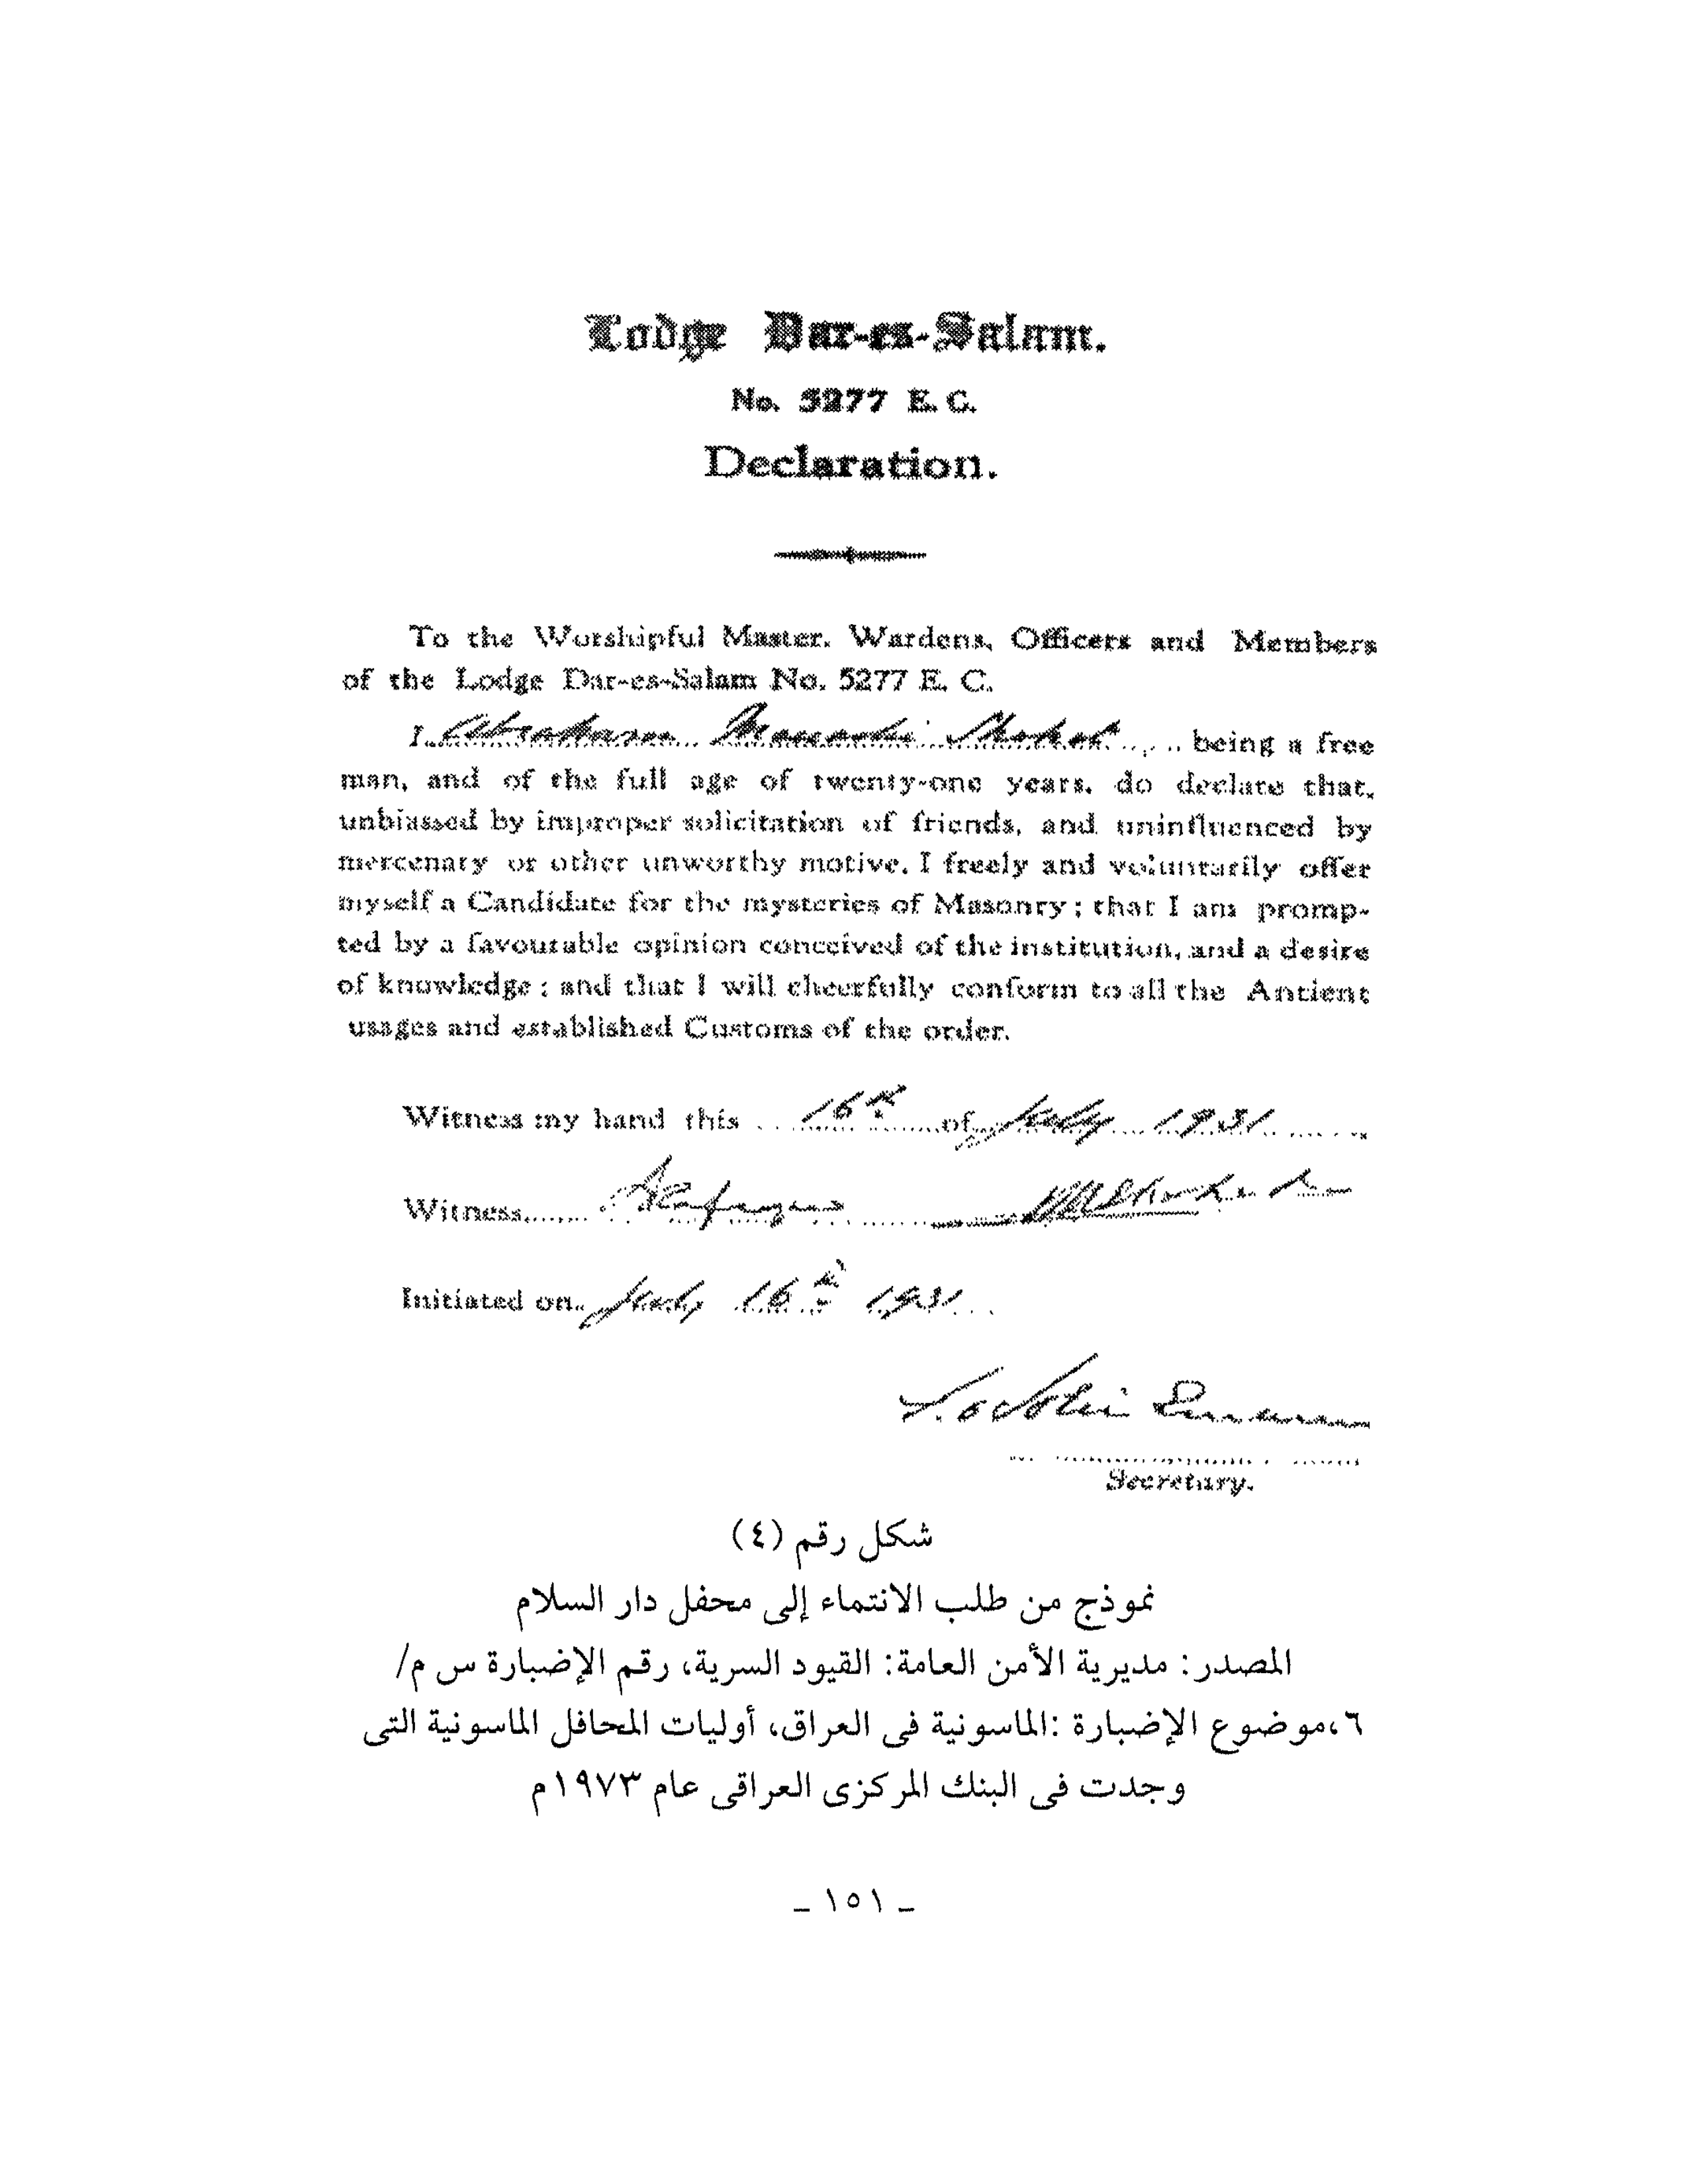 Lodge Dar-es-Salam.
No. 5277 E. C.
Declaration.
To the Worshipful Master, Wardens, Officers and Members
of the Lodge Dar-es-Salam No. 5277 E. C.
I Abraham Shohet being a free
man, and of the full age of twenty-one years, do declare that,
unbiassed by improper solicitation of friends, and uninfluenced by
mercenary or other unworthy motive, I freely and voluntarily offer
myself a Candidate for the mysteries of Masonry; that I am promp-
ted by a favourable opinion conceived of the institution, and a desire
of knowledge; and that I will cheerfully conform to all the Antient
usages and established Customs of the order.
Witness my hand this 16th of July 1931
Witness
Initiated on July 16th 1931
Secretary.
شكل رقم (٤)
نموذج من طلب الانتماء إلى محفل دار السلام
المصدر: مديرية الأمن العامة: القيود السرية، رقم الإضبارة س م/
٦،موضوع الإضبارة :الماسونية فى العراق، أوليات المحافل الماسونية التى
وجدت فى البنك المركزى العراقى عام ١٩٧٣م
ـ ١٥١ ـ